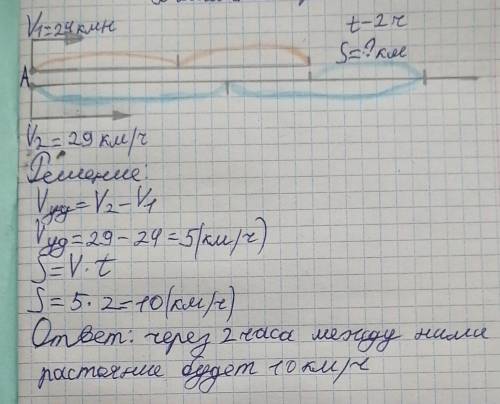 V1=24км/н
t-2ч
S=?км
A
V2=29 км/ч
Решение:
Vуд=V2-V1
Vуд=29-24=5(км/ч)
S=V·t
S=5·2=10(км/ч)
Ответ: через 2 часа между ними
растояние будет 10 км/ч